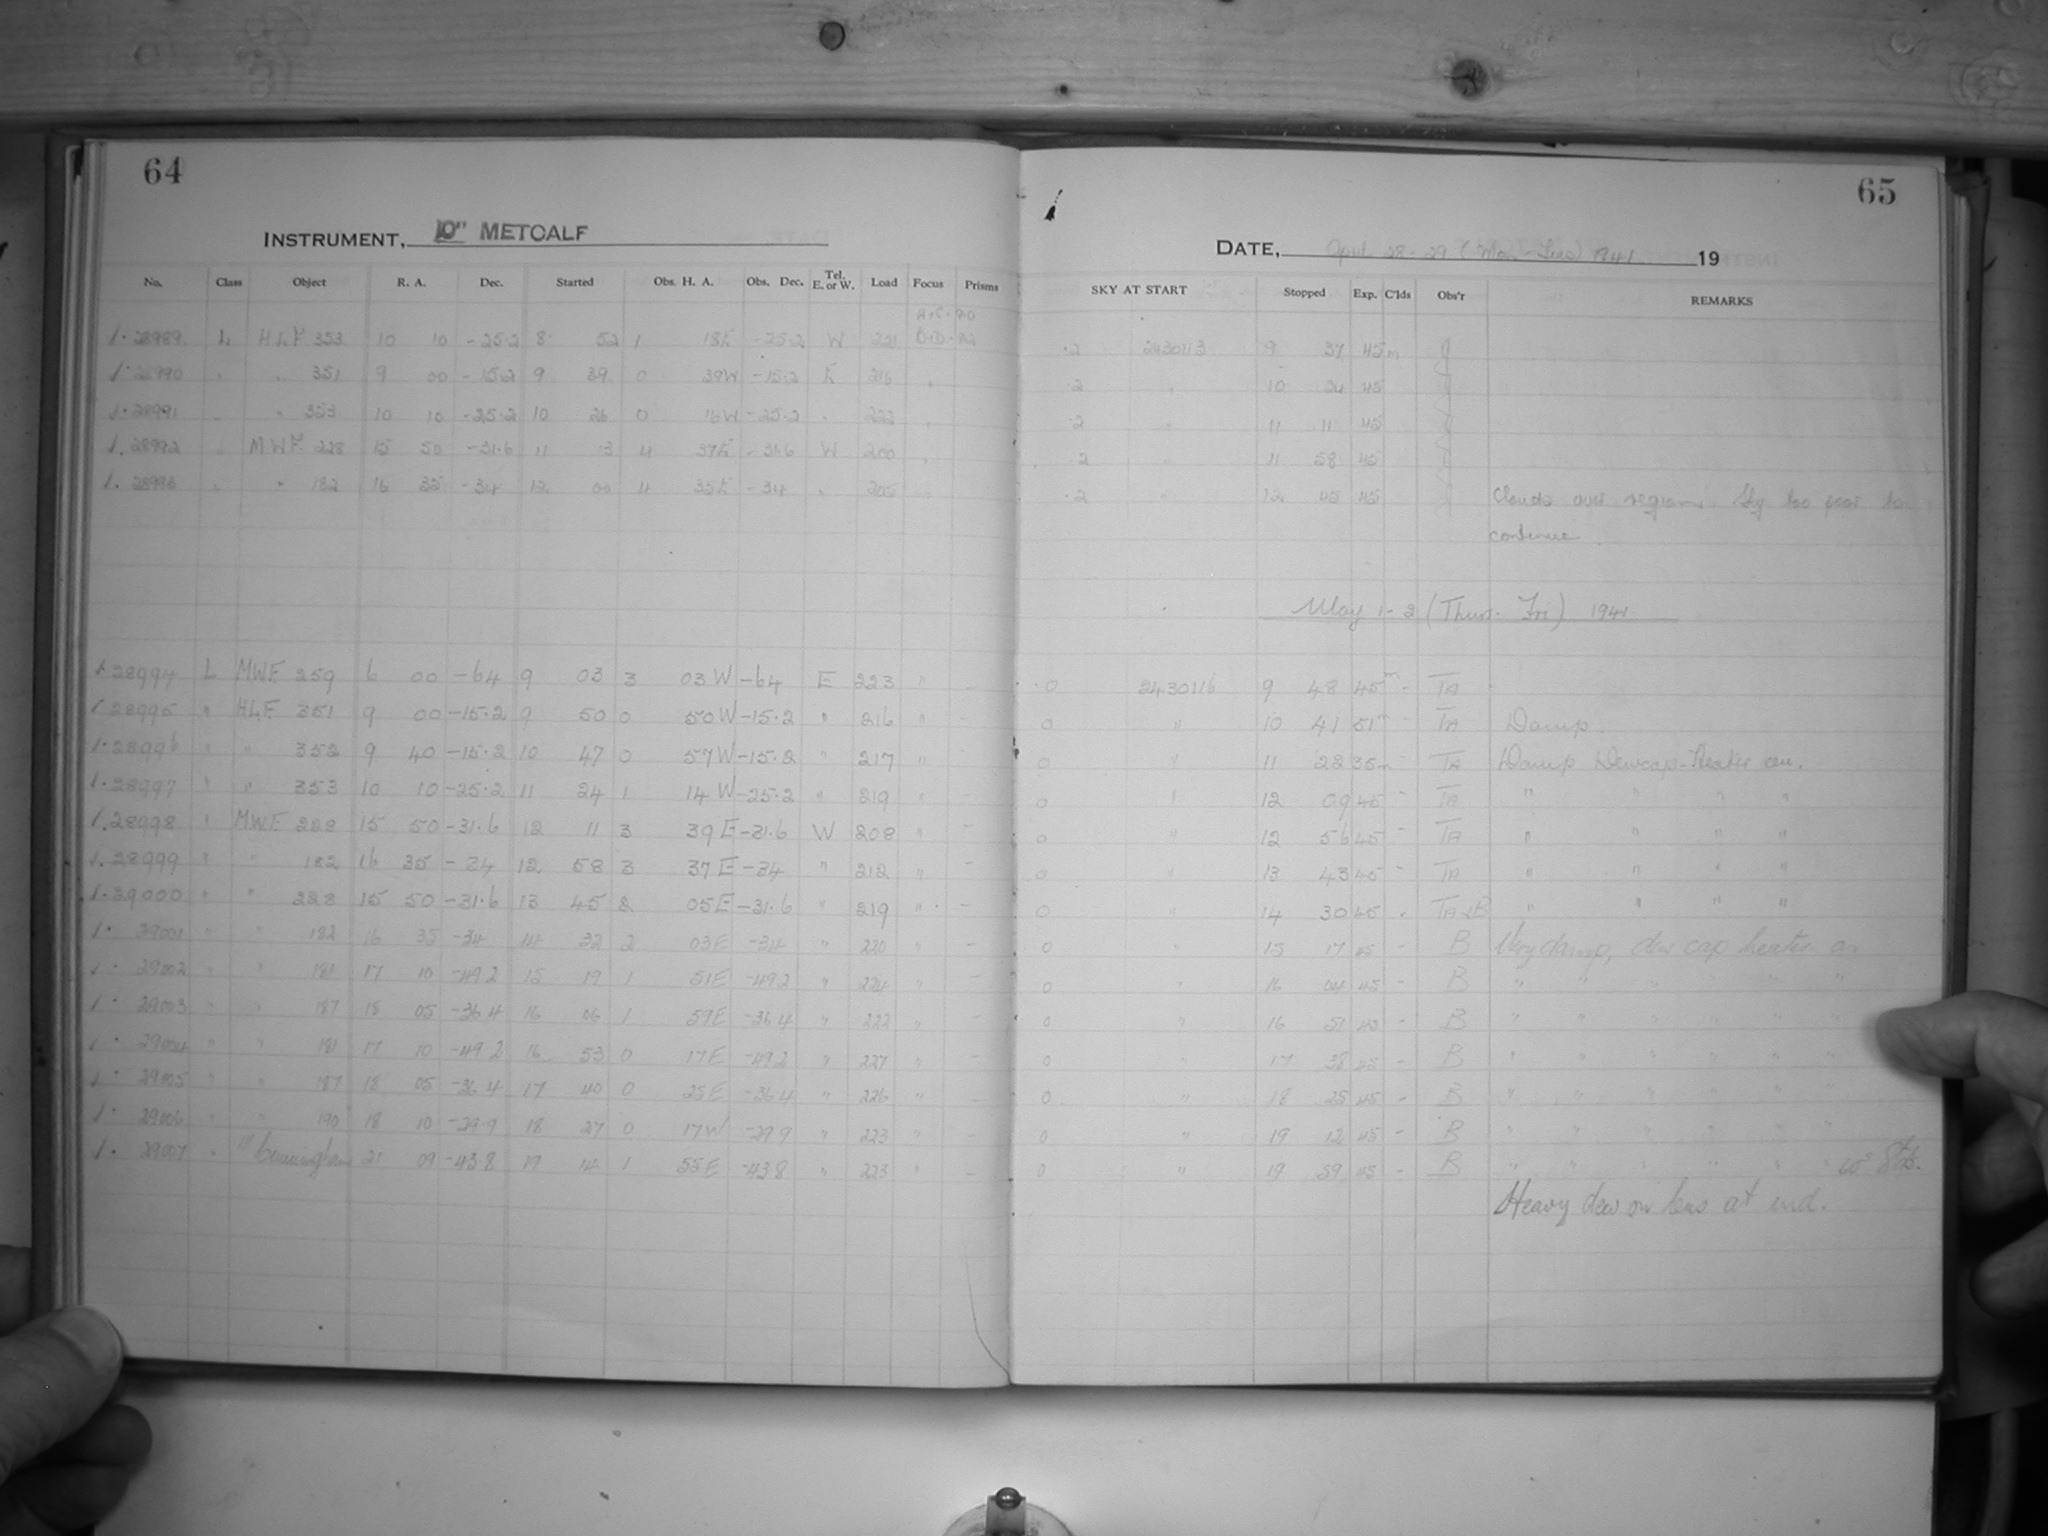 64
INSTRUMENT, 10" METCALF
No. Class Object R. A. Dec. Started Obs. H. A. Obs. Dec. Tel. E. or W. Load Focus Prisms
1. 28989 L HLF 353 10 10 -25.2 8 52 1 18E -25.2 W 221
1. 28990 " " 351 9 00 -15.2 9 39 0 39W -15.2 E 216 "
1. 28991 " " 353 10 10 -25.2 10 26 0 16W -25.2 " 222 "
1. 28992 " MWF. 228 15 50 -31.6 11 13 4 37E -31.6 W 200 "
1. 28993 " " 182 16 35 -34 12 00 4 35E -34 " 205 "
1. 28994 L MWF. 259 6 00 -64 9 03 3 03 W -64 E 223 " -
1. 28995 " HLF. 351 9 00 -15.2 9 50 0 50 W -15.2 " 216 " -
1. 28996 " " 352 9 40 -15.2 10 47 0 57 W -15.2 " 217 "
1. 28997 " " 353 10 10 -25.2 11 24 1 14 W -25.2 " 219 " -
1. 28998 " M.W.F. 228 15 50 -31.6 12 11 3 39 E -31.6 W 208 " -
1. 28999 " " 182 16 35 -34 12 58 3 37 E -34 " 212 " -
1. 29000 " " 228 15 50 -31.6 13 45 2 05 E -31.6 " 219 " -
1. 29001 " " 182 16 35 -34 14 32 2 03 E -34 " 220 " -
1. 29002 " " 181 17 10 -49.2 15 19 1 51 E -49.2 " 224 " -
1. 29003 " " 187 18 05 -36.4 16 06 1 59 E -36.4 " 222 " -
1. 29004 " " 181 17 10 -49.2 16 53 0 17 E -49.2 " 227 " -
1. 29005 " " 187 18 05 -36.4 17 40 0 25 E -36.4 " 226 " -
1. 29006 " " 190 18 10 -29.9 18 27 0 17 W -29.9 " 223 " -
1. 29007 " Cunningham 21 09 -43.8 19 14 1 55 E -43.8 " 223 " -
65
DATE, April 28-29 (Mon-Tues) 1941 19
SKY AT START Stopped Exp. C'lds Obs'r REMARKS
.2 2430113 9 37 45m J
.2 " 10 24 45
.2 " 11 11 45
.2 " 11 58 45
.2 " 12 45 45 Clouds over region. Sky too poor to
continue.
May 1-2 (Thurs.-Fri) 1941
0 2430116 9 48 45m - TA
0 " 10 41 51m - TA Damp
0 " 11 22 35m - TA Damp Dewcap-Heater on.
0 " 12 09 45 - TA " " " "
0 " 12 56 45 - TA " " " "
0 " 13 43 45 - TA " " " "
0 " 14 30 45 - TA & B " " " "
0 " 15 17 45 - B Very damp, dew cap heater on
0 " 16 04 45 - B " " " " "
0 " 16 51 45 - B " " " " "
0 " 17 38 45 - B " " " " "
0 " 18 25 45 - B " " " " "
0 " 19 12 45 - B " " " " "
0 " 19 59 45 - B " " " " " "
Heavy dew on lens at end.